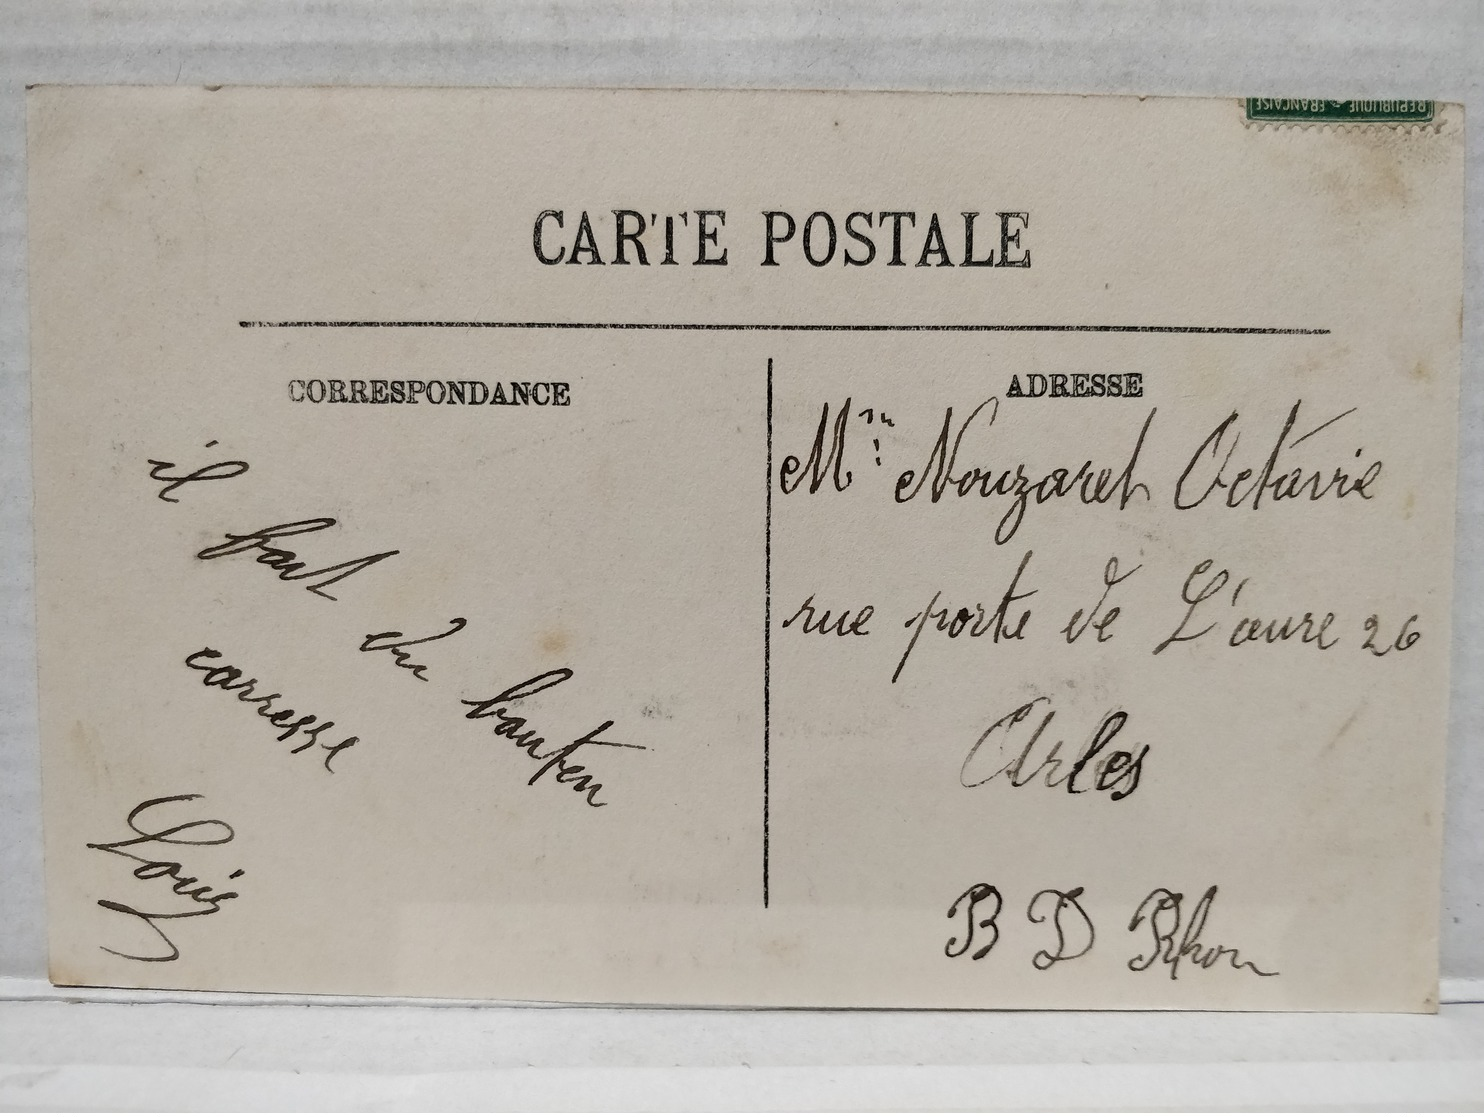 REPUBLIQUE FRANÇAISE
CARTE POSTALE
CORRESPONDANCE
il fait du bauten
carresse
Louis
ADRESSE
Mme Nouzaret Octavie
rue porte de L'aure 26
Arles
B D Rhon